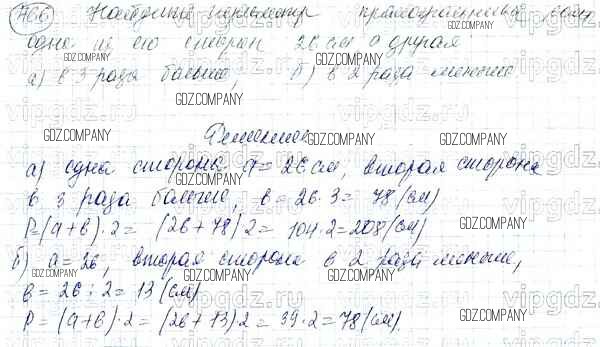 766 Найдите периметр прямоугольника, если
одна из его сторон 26 см а другая
а) в 3 раза больше; б) в 2 раза меньше.
Решение
а) одна сторона a = 26 см, вторая сторона
в 3 раза больше, в = 26·3 = 78 (см)
P = (a+в)·2 = (26+78)2 = 104·2 = 208 (см)
б) a = 26, вторая сторона в 2 раза меньше,
в = 26:2 = 13 (см)
P = (a+в)·2 = (26+13)2 = 39·2 = 78 (см).
GDZ.COMPANY
vipgdz.ru